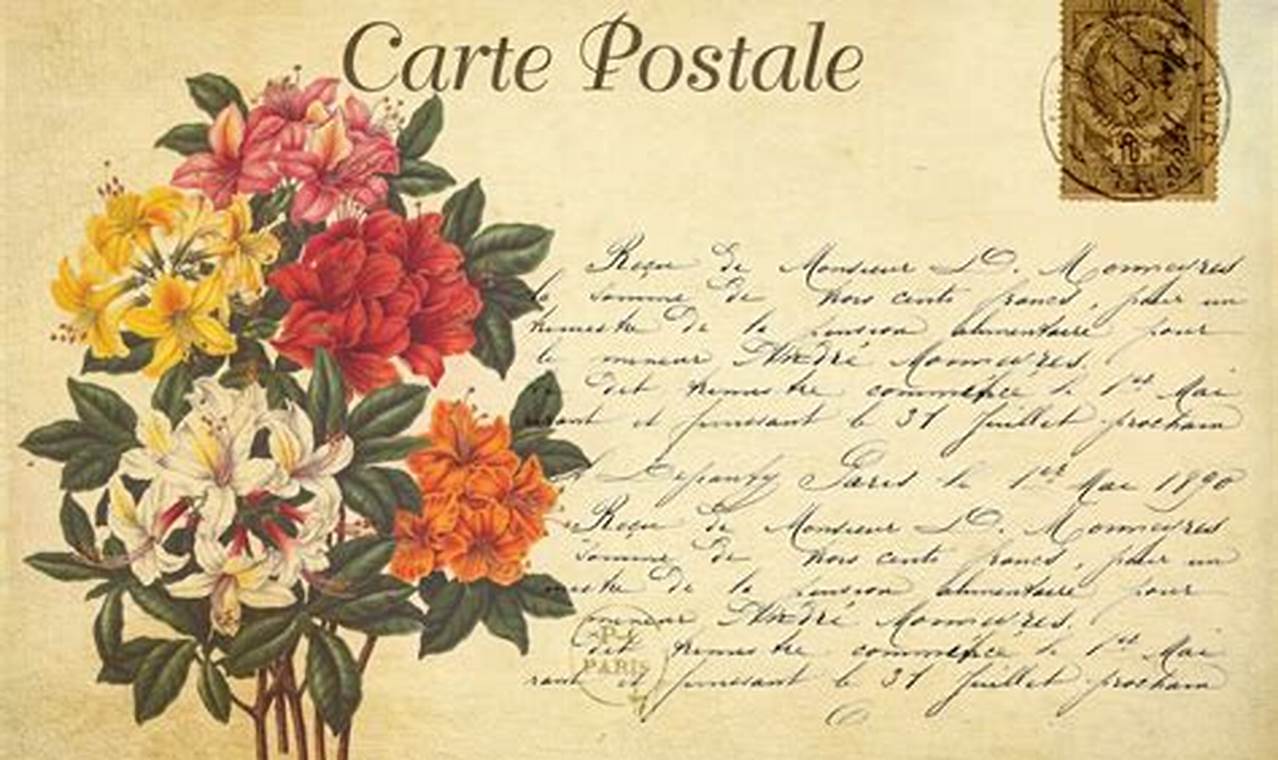 Carte Postale
10
Reçu de Monsieur D. Monneyres
la somme de trois cents francs, pour un
trimestre de la pension alimentaire pour
le mineur André Monneyres.
dit trimestre commencé le 1er Mai
et finissant le 31 Juillet prochain
Paris le 1er Mai 1890
Reçu de Monsieur D. Monneyres
somme de trois cents francs, pour un
de la pension alimentaire pour
mineur André Monneyres.
dit trimestre commencé le 1er Mai
et finissant le 31 Juillet prochain
PARIS